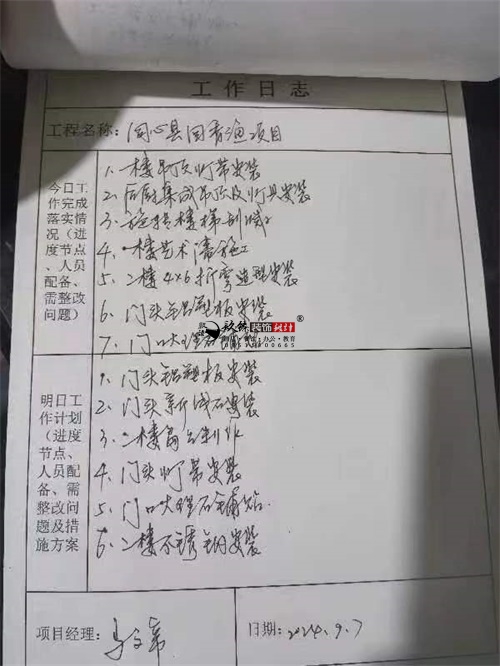 工作日志
工程名称: 同心县回香渔项目
今日工作完成落实情况(进度节点、人员配备、需整改问题)
1、一楼吊顶灯带安装
2、后厨集成吊顶及灯具安装
3、旋转楼梯
4、一楼艺术漆施工
5、二楼4×6折弯造型安装
6、门头铝塑板安装
7、门口大理石
装饰设计®
办公·教育
明日工作计划(进度节点、人员配备、需整改问题及措施方案
1、门头铝塑板安装
2、门头安装
3、二楼制作
4、门头灯带安装
5、门口大理石铺贴
6、二楼不锈钢安装
项目经理:
日期: 2024.9.7